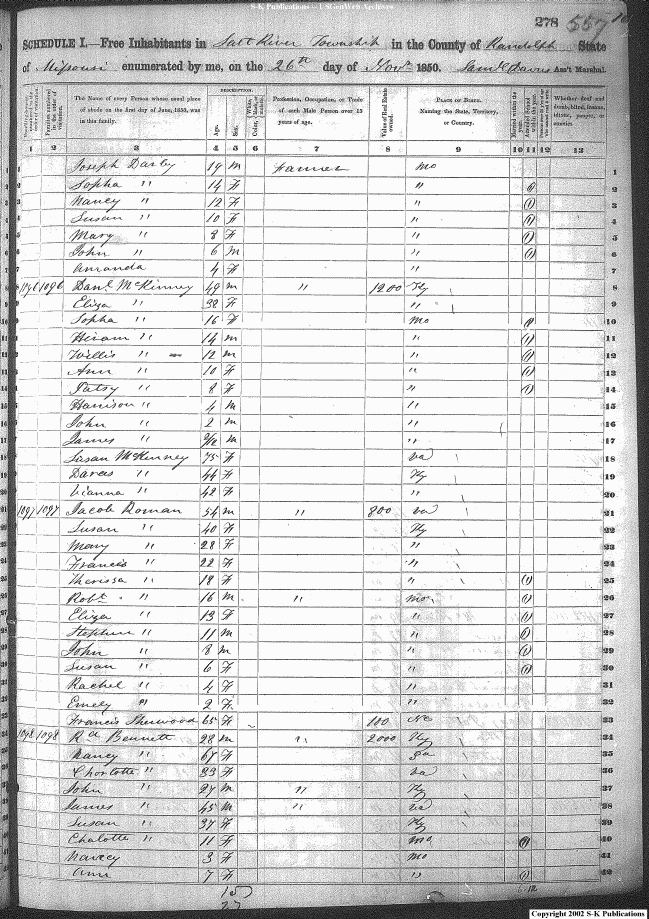 S-K Publications — USGenWeb Archives
278 557
SCHEDULE I.—Free Inhabitants in Salt River Township in the County of Randolph State
of Missouri enumerated by me, on the 26th day of Novr 1850. Saml Davis Ass't Marshal.
DESCRIPTION.
The Name of every Person whose usual place of abode on the first day of June, 1850, was in this family. Age. Sex. Profession, Occupation, or Trade of each Male Person over 15 years of age. Value of Real Estate owned. PLACE OF BIRTH. Naming the State, Territory, or Country. Whether deaf and dumb, blind, insane, idiotic, pauper, or convict.
1 2 3 4 5 6 7 8 9 10 11 12 13
1 Joseph Darby 19 m Farmer mo 1
2 Sopha " 14 F " 1 2
3 Nancy " 12 F " 1 3
4 Susan " 10 F " 1 4
5 Mary " 8 F " 1 5
6 John " 6 m " 1 6
7 Amanda 4 F " 7
8 1096 1096 Danl McKinney 49 m " 1200 Ky 8
9 Eliza " 38 F " 9
10 Sopha " 16 F mo 1 10
11 Hiram " 14 m " 1 11
12 Willis " 12 m " 1 12
13 Ann " 10 F " 1 13
14 Patsy " 8 F " 1 14
15 Harrison " 4 m " 15
16 John " 2 m " 16
17 James " 2/12 m " 17
18 Susan McKinney 75 F va 18
19 Darcas " 44 F Ky 19
20 Vianna " 42 F " 20
21 1097 1097 Jacob Roman 54 m " 800 va 21
22 Susan " 40 F Ky 22
23 Mary " 28 F " 23
24 Francis " 22 F " 24
25 Therissa " 18 F " 1 25
26 Robt " 16 m " mo 1 26
27 Eliza " 13 F " 1 27
28 Stephen " 11 m " 1 28
29 John " 8 m " 1 29
30 Susan " 6 F " 1 30
31 Rachel " 4 F " 31
32 Emely " 2 F " 32
33 Francis Sherwood 65 F 100 Nc 33
34 1098 1098 Rd Bennett 28 m " 2000 Ky 34
35 Nancy " 67 F 35
36 Charlotte " 33 F va 36
37 John " 27 m " Ky 37
38 James " 45 m " va 38
39 Susan " 37 F Ky 39
40 Chalotte " 11 F mo 1 40
41 Nancy 3 F mo 41
42 Ann 7 F " 1 42
15
27
Copyright 2002 S-K Publications